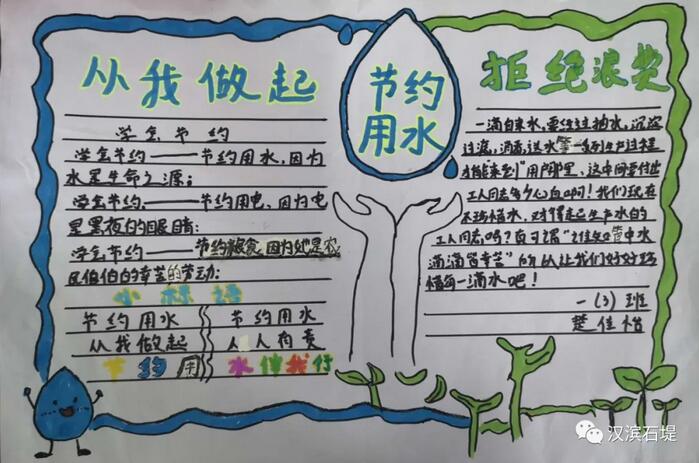 从我做起
节约
用水
拒绝浪费
学会节约
学会节约——节约用水,因为
水是生命之源;
学会节约——节约用电,因为电
是黑夜的眼睛;
学会节约——节约粮食,因为她是农
民伯伯的辛苦的劳动;
小标语
节约用水 节约用水
从我做起 人人有责
节约用水 水伴我行
一滴自来水,要经过抽水,沉淀
过滤,消毒,送水等一系列生产过程
才能"来到"用户那里,这中间要付出
工人同志多少心血啊!我们现在
不珍惜水,对得起生产水的
工人同志吗?真可谓"谁知管中水
滴滴皆辛苦"所以让我们好好珍
惜每一滴水吧!
一(3)班
楚佳怡
汉滨石堤